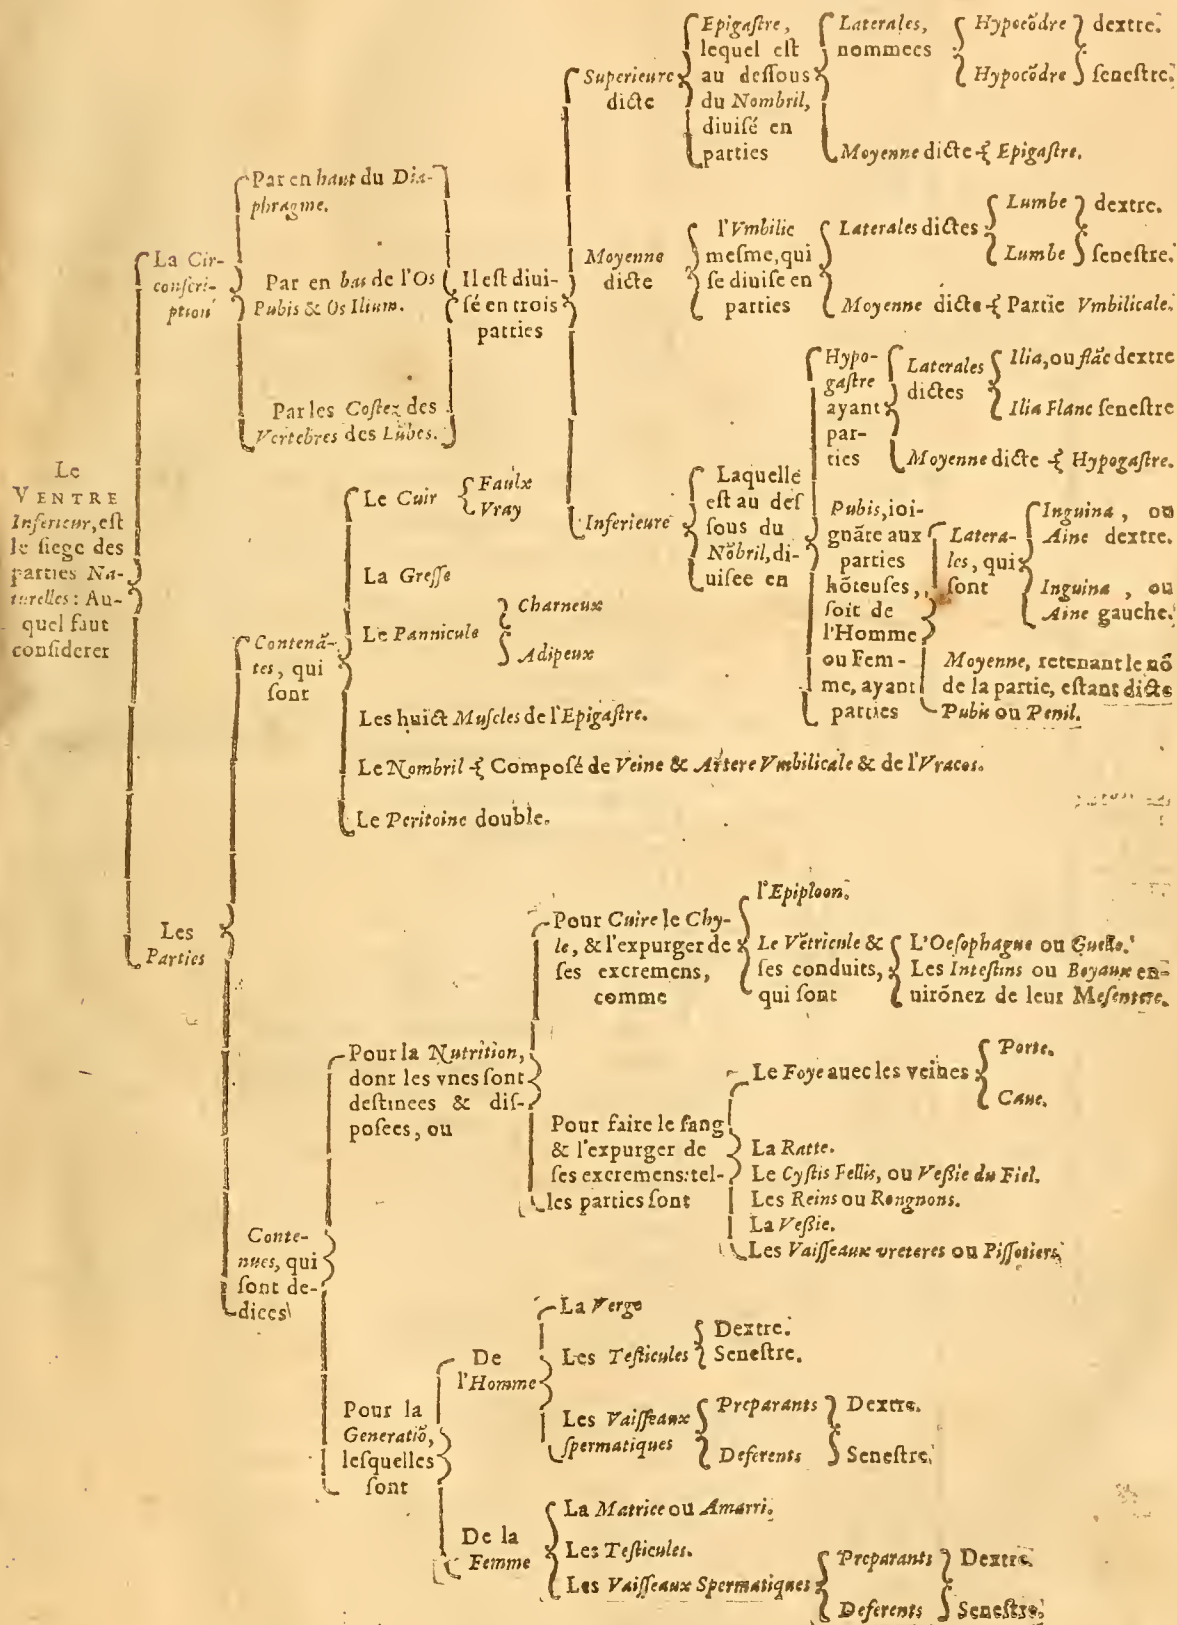 Le
VENTRE
Inferieur, est
le siege des
parties Na-
turelles : Au-
quel faut
considerer
La Cir-
conscri-
ption
Par en haut du Dia-
phragme.
Par en bas de l'Os
Pubis & Os Ilium.
Par les Costez des
Vertebres des Lũbes.
Il est diui-
sé en trois
parties
Superieure
dicte
Epigastre,
lequel est
au dessous
du Nombril,
diuisé en
parties
Laterales,
nommees
Hypocõdre
Hypocõdre
dextre.
senestre.
Moyenne dicte Epigastre.
Moyenne
dicte
l'Vmbilic
mesme, qui
se diuise en
parties
Laterales dictes
Lumbe
Lumbe
dextre.
senestre.
Moyenne dicte Partie Vmbilicale.
Inferieure
Laquelle
est au des
sous du
Nõbril, di-
uisee en
Hypo-
gastre
ayant
par-
ties
Laterales
dictes
Ilia, ou flãc dextre
Ilia Flanc senestre
Moyenne dicte Hypogastre.
Pubis, ioi-
gnãte aux
parties
hõteuses,
soit de
l'Homme
ou Fem-
me, ayant
parties
Latera-
les, qui
sont
Inguina, ou
Aine dextre.
Inguina, ou
Aine gauche.
Moyenne, retenant le nõ
de la partie, estans dicte
Pubis ou Penil.
Les
Parties
Contenã-
tes, qui
sont
Le Cuir
Faulx
Vray
La Gresse
Le Pannicule
Charneux
Adipeux
Les huict Muscles de l'Epigastre.
Le Nombril Composé de Veine & Artere Vmbilicale & de l'Vracos.
Le Peritoine double.
Conte-
nues, qui
sont de-
diees
Pour la Nutrition,
dont les vnes sont
destinees & dis-
posees, ou
Pour Cuire le Chy-
le, & l'expurger de
ses excremens,
comme
l'Epiploon.
Le Vẽtricule &
ses conduits,
qui sont
L'Oesophague ou Gueule.
Les Intestins ou Boyaux en-
uirõnez de leur Mesentere.
Pour faire le sang
& l'expurger de
ses excremens: tel-
les parties sont
Le Foye auec les veines
Porte.
Caue.
La Ratte.
Le Cystis Fellis, ou Vessie du Fiel.
Les Reins ou Rongnons.
La Vessie.
Les Vaisseaux vreteres ou Pissotiers.
Pour la
Generatiõ,
lesquelles
sont
De
l'Homme
La Verge
Les Testicules
Dextre.
Senestre.
Les Vaisseaux
spermatiques
Preparants
Deferents
Dextre.
Senestre.
De la
Femme
La Matrice ou Amarri.
Les Testicules.
Les Vaisseaux Spermatiques
Preparants
Deferents
Dextre.
Senestre.